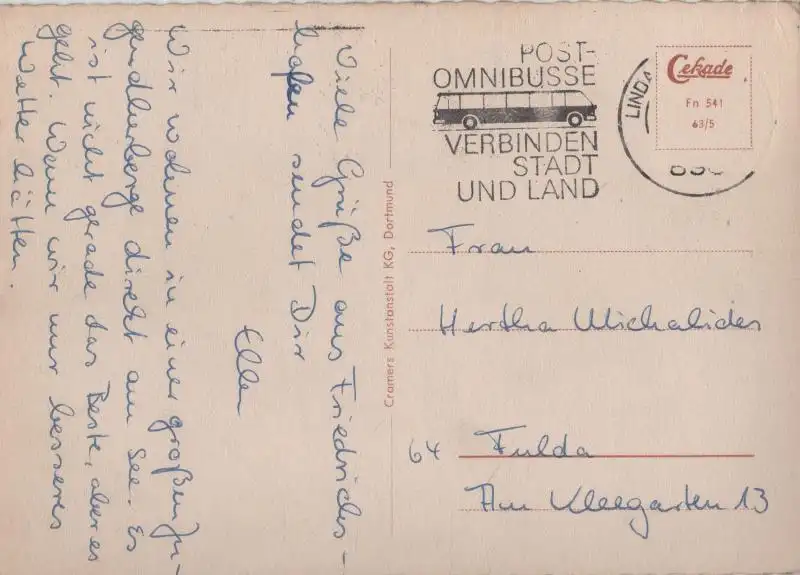 Viele Grüße aus Friedrichs-
hafen sendet Dir
Ellen
Wir wohnen in einer großen Ju-
gendherberge direkt am See. Es
ist nicht gerade das Beste, aber es
geht. Wenn wir nur besseres
Wetter hätten.
Cramers Kunstanstalt KG, Dortmund
POST-
OMNIBUSSE
VERBINDEN
STADT
UND LAND
LINDA
Cekade
Fn 541
63/5
Frau
Hertha Michalides
64 Fulda
Am Kleegarten 13